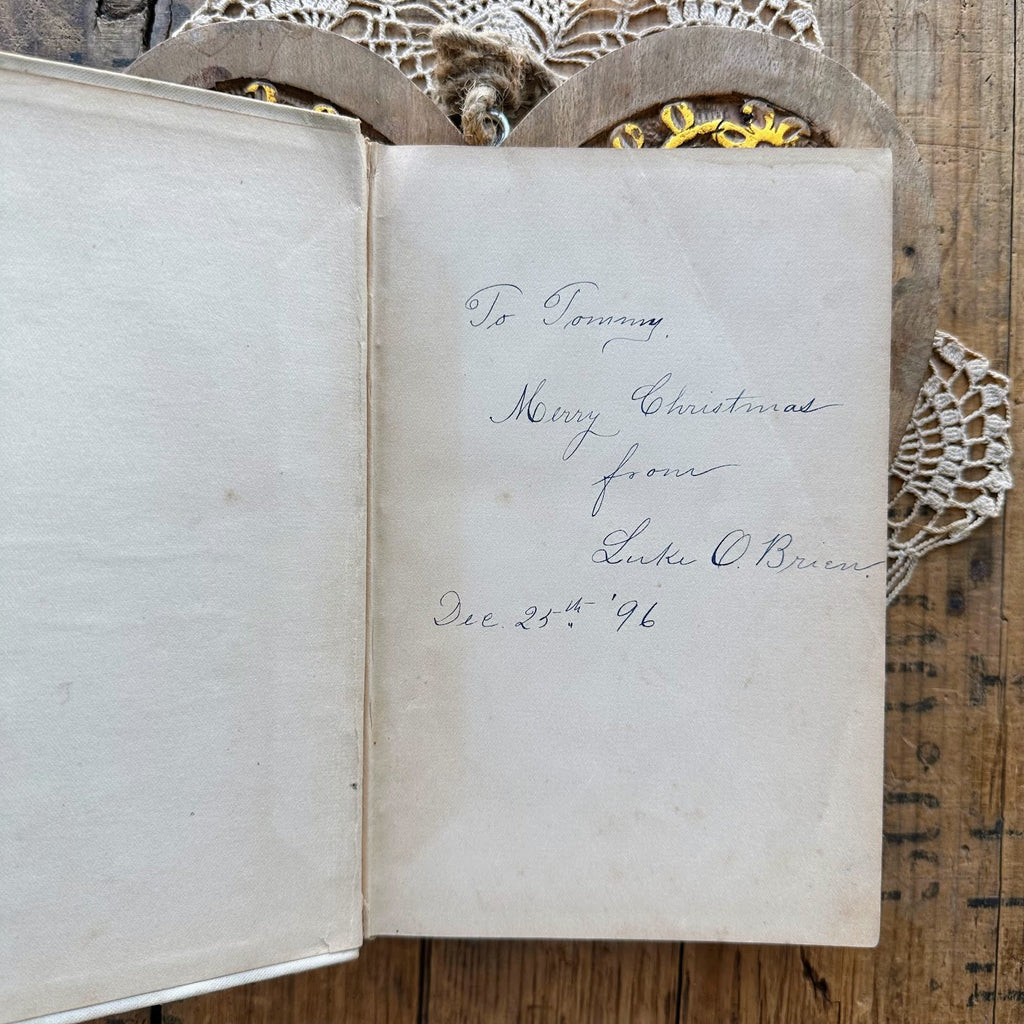 To Tommy.
Merry Christmas
from
Luke O.Brien.
Dec. 25th '96